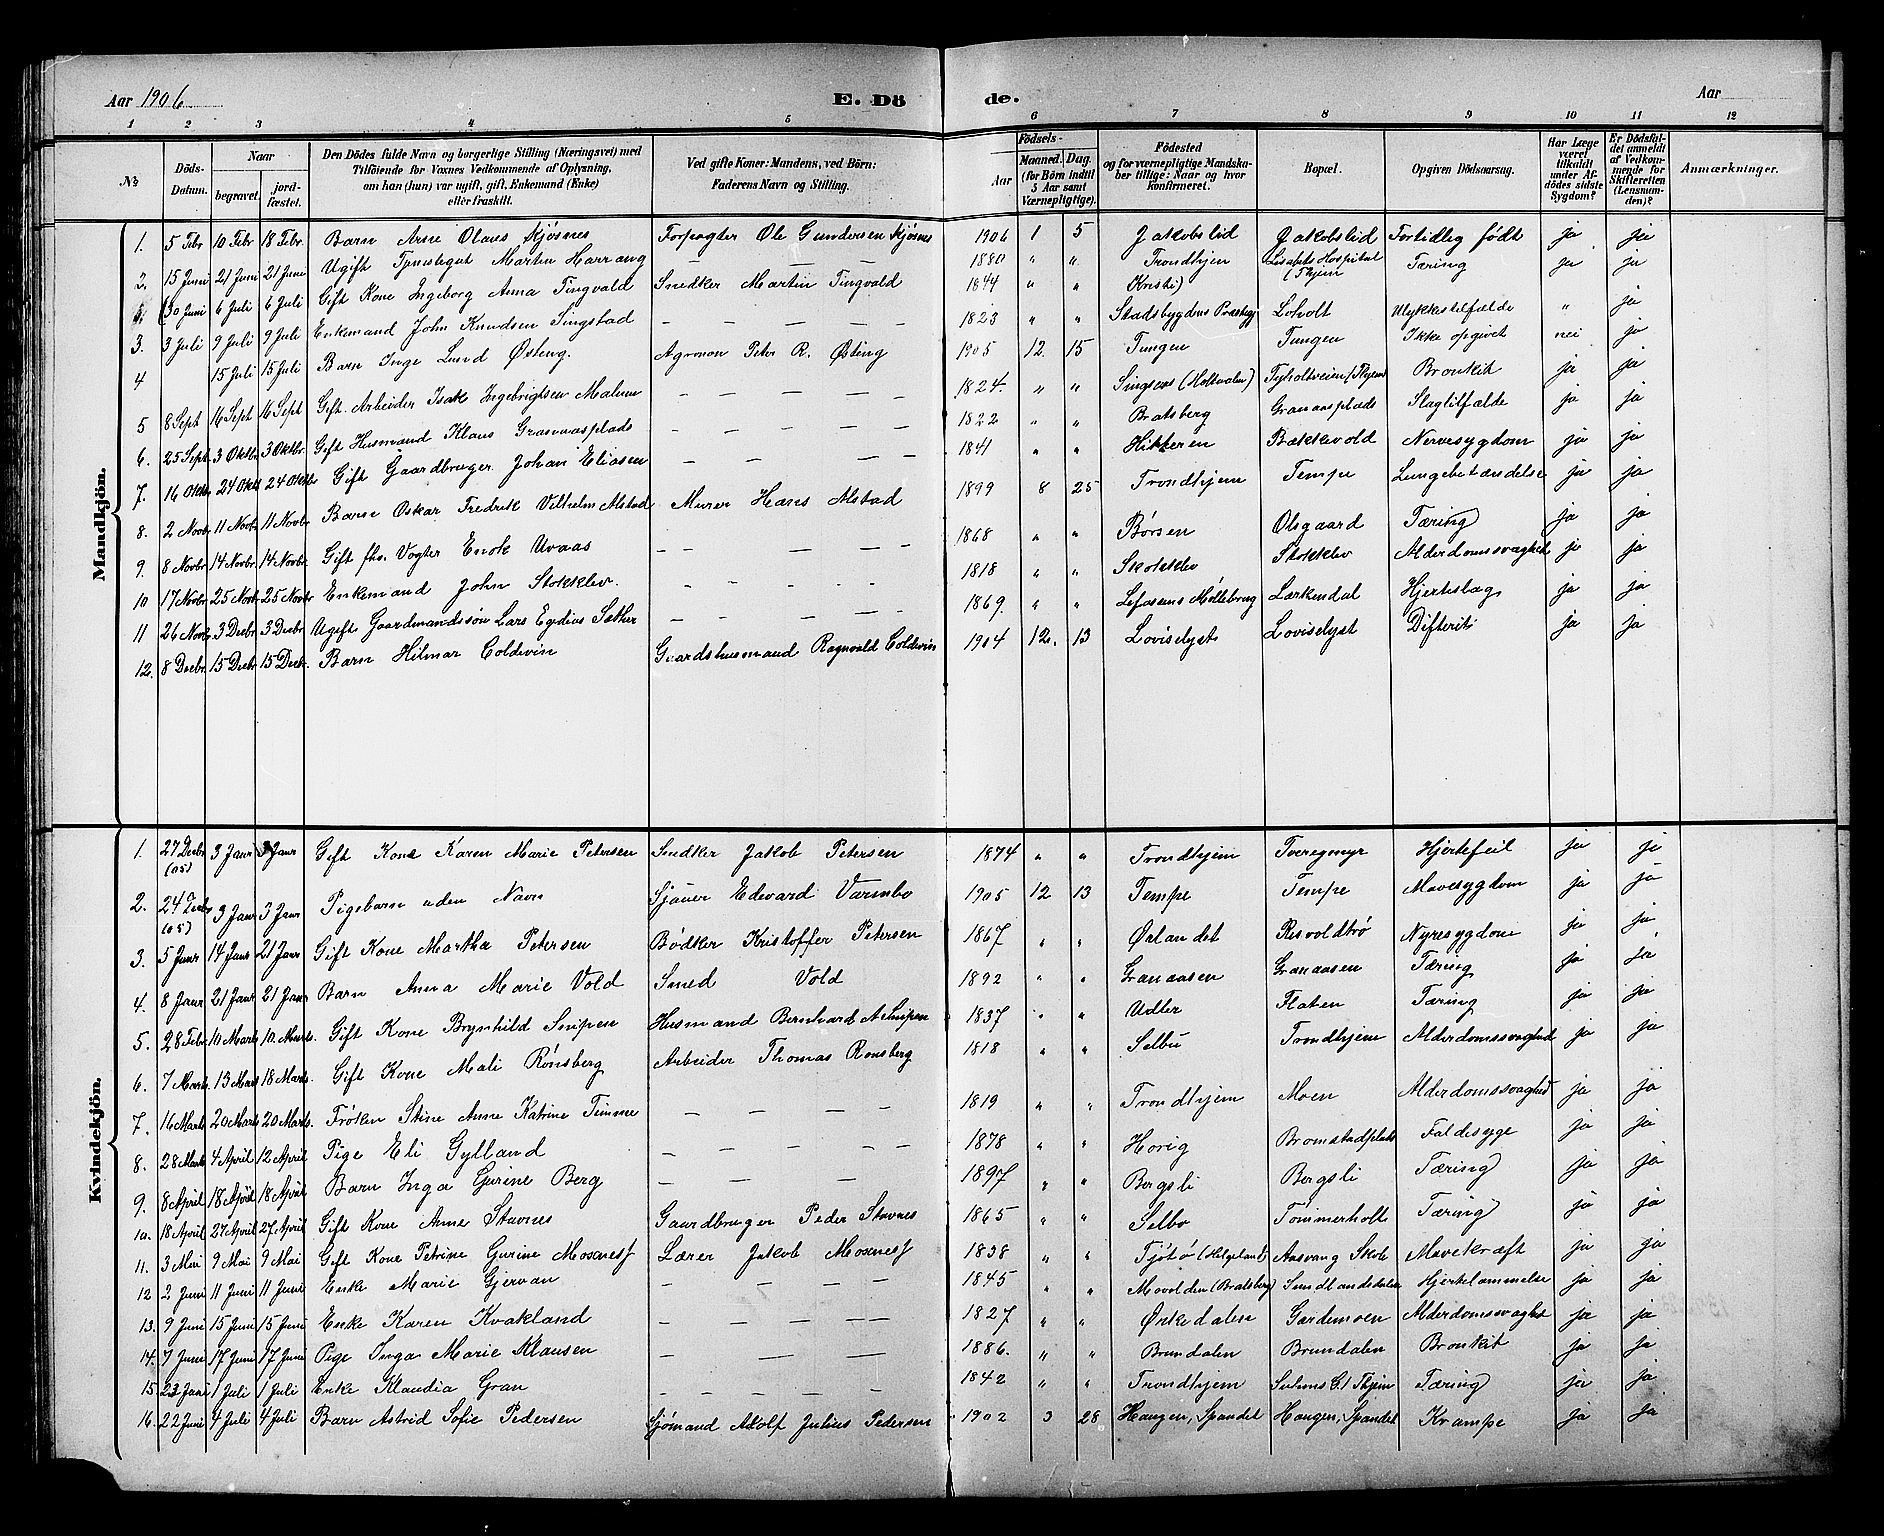 Aar 1906 E. Dö de. Aar
1 2 3 4 5 6 7 8 9 10 11 12
№ Döds-Datum. Naar begravet. jord-fæstet. Den Dödes fulde Navn og borgerlige Stilling (Næringsvei) med Tilföiende for Voxnes Vedkommende af Oplysning, om han (hun) var ugift, gift, Enkemand (Enke) eller fraskilt. Ved gifte Koner: Mandens, ved Börn: Faderens Navn og Stilling. Födsels- Aar Maaned. Dag. (for Börn indtil 5 Aar samt Værnepligtige). Födested og for værnepligtige Mandskaber tillige: Naar og hvor konfirmeret. Bopæl. Opgiven Dödsaarsag. Har Læge været tilkaldt under Afdödes sidste Sygdom? Er Dödsfaldet anmeldt af Vedkommende for Skifteretten (Lensmanden)? Anmærkninger.
Mandkjön.
1. 5 Febr 10 Febr 18 Febr. Barn Arne Olaus Kjøsnes Forpagter Ole Gundersen Kjøsnes 1906 1 5 Jakobslid Jakobslid Fortidlig født ja ja
2. 15 Juni 21 Juni 21 Juni Ugift Martin Harrang — — — — 1880 " " Trondhjem Hospital (Thjem Tæring ja ja
30 Juni 6 Juli 6 Juli Gift Kone Ingeborg Anna Tingvald Snedker Martin Tingvald 1844 " " Kristi)
3. 3 Juli 9 Juli 9 Juli Enkemand John Knudsen Singstad — — — — 1823 " " Stadsbygdens Præstegj Loholt Ulykkestilfælde " ja
4 15 Juli 15 Juli Barn Inge Lund Østeng. Agronom Peter R. Østing 1905 12. 15 Tungen Tungen Ikke opgivet nei ja
5 8 Sept 16 Sept 16 Sept Gift Arbeider Isak Ingebrigtsen Malum — — — — 1824. " " Singsaas (Holtaalen) Tyholtveien/Thjem Bronkit ja ja
6. 25 Sept 3 Oktbr 3 Oktbr. Gift Husmand Klaus Granaasplads — — — — 1822 " " Bratsberg Granaasplads Slagtilfælde ja ja
7. 16 Oktbr 24 Oktbr 24 Oktbr Gift Gaardbruger Johan Eliasen — — — — 1841 " " Hitteren Bækkevold Nervesygdom ja ja
8. 2 Novbr 11 Novbr. 11 Novbr. Barn Oskar Fredrik Vilhelm Alstad Murer Hans Alstad 1899 8 25 Trondhjem Tempe Lungebetændelse ja ja
9. 8 Novbr 14 Novbr. 14 Novbr. Gift fhv. Vogter Enok Uvaas — — — — 1868 " " Børsen Olsgaard Tæring ja ja
10 17 Novbr 25 Novbr 25 Novbr Enkemand John Stokklev. — — — — 1818 " " Stokklev Alderdomssvaghed ja ja
11 26 Novb 3 Decbr 3 Decbr Ugift Gaardmandssøn Lars Egidius Sæther — — — — 1869. " " Møllebrug Lærkendal Hjerteslag ja ja
12. 8 Decbr 15 Decbr 15 Decbr. Barn Hilmar Coldevin Gaardshusmand Ragnvald Coldevin 1904 12. 13 Loviselyst Loviselyst Difterit ja ja
Kvindekjön.
1. 27 Decbr (05) 3 Janr 3 Janr Gift Kone Karen Marie Petersen Snedker Jakob Petersen 1874 " " Trondhjem Tveregmyr Hjertefeil ja ja
2. 24 Decbr (05) 3 Janr 3 Janr Pigebarn uden Navn Sjauer Edevard Varmbo 1905 12 13 Tempe Tempe Mavesygdom ja ja
3. 5 Janr 14 Janr 21 Janr Gift Kone Martha Petersen Bødker Kristoffer Petersen 1867 " " Ørlandet Risvoldtrø Nyresygdom ja ja
4. 8 Janr 21 Janr 21 Janr Barn Anna Marie Vold Smed Vold 1892 " " Granaasen Granaasen Tæring ja ja
5. 28 Febr 10 Marts 10. Marts. Gift Kone Brynhild Snipen Husmand Bernhard A Snipen 1837 " " Udler Flaten Tæring ja ja
6. 7 Marts. 13 Marts 18 Marts. Gift Kone Mali Rønsberg Arbeider Thomas Rønsberg 1818 " " Selbu Trondhjem Alderdomssvaghed ja ja
7. 16 Marts 20 Marts 20 Marts. Frøken Stine Anne Katrine Timme — — — — 1819 " " Trondhjem Moen Alderdomssvaghed ja ja
8. 28 Marts 4 April 12 April Pige Eli Gylland — — — — 1878 " " Horig Bromstadplads Faldesyge ja ja
9. 8 April 18 April 18 April Barn Inga Gurine Berg — — — — 1897 " " Bergsli Bergsli Tæring ja ja
10. 18 April 27 April 27. April Gift Kone Anne Stavnes Gaardbruger Peder Stavnes 1865 " " Selbo Tømmerholt Tæring ja ja
11. 3 Mai 9 Mai 9 Mai Gift Kone Petrine Gurine Mosnesf Lærer Jakob Mosnesf 1838 " " Tjøtø (Helgeland) Aasvang Skole Mavekræft ja ja
12 2 Juni 11 Juni 11 Juni Enke Marie Gjervan — — — — 1845 " " Movolden (Bratsberg) Sundlandsdalen Hjertelammelse ja ja
13. 9 Juni 15 Juni 15 Juni Enke Karen Kvakland — — — — 1827 " " Ørkedalen Gardemoen Alderdomssvaghed ja ja
14. 7 Juni 17 Juni 17 Juni Pige Inga Marie Klausen — — — 1886. " " Brundalen Brundalen Bronkit ja ja
15 23 Juni 1 Juli 1 Juli Enke Klaudia Gran — — — — 1842 " " Trondhjem Thjem Tæring ja ja
16. 22 Juni 4 Juli 4 Juli Barn Astrid Sofie Pedersen Sjømand Adolf Julius Pedersen 1902 3 28 Haugen, Spandet Haugen, Spandet Krampe ja ja